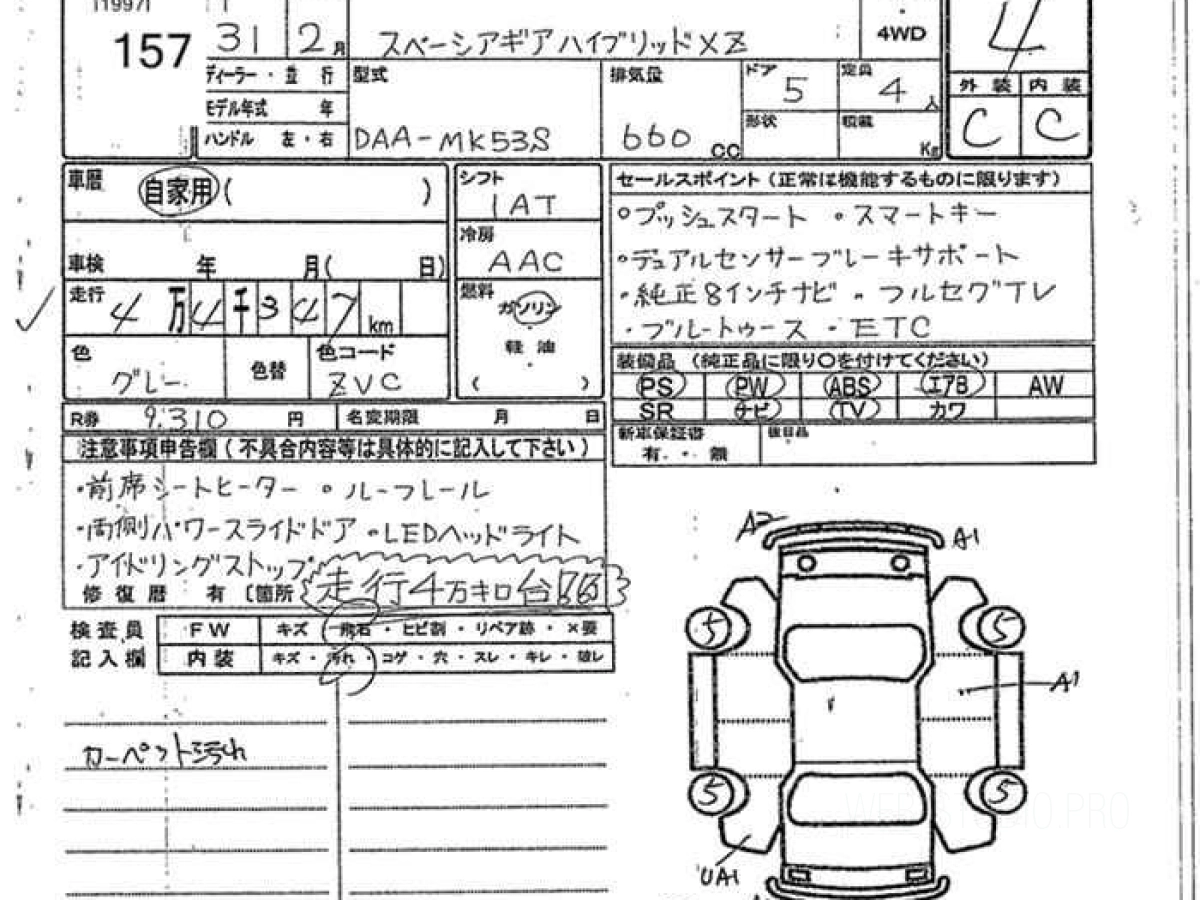 [1997]
157
31
2月
スペーシアギアハイブリッドXZ
4WD
4
ディーラー・並 行
モデル年式 年
ハンドル 左・右
型式
DAA-MK53S
排気量
660
CC
ドア
5
定員
4
人
形状
積載
Kg
外 装
内 装
C
C
車歴
自家用( )
車検 年 月( 日)
走行
4万4千347
km
色
グレー
色替
色コード
ZVC
シフト
IAT
冷房
AAC
燃料
ガソリン
・
軽 油
・
( )
セールスポイント(正常は機能するものに限ります)
○プッシュスタート ・スマートキー
・デュアルセンサーブレーキサポート
・純正8インチナビ 。フルセグTV
・ブルートゥース ・ETC
装備品 (純正品に限り○を付けてください)
PS PW ABS エアB AW
SR ナビ TV カワ
新車保証書
有・・無
後日品
R券 9.310 円
名変期限 月 日
注意事項申告欄(不具合内容等は具体的に記入して下さい)
・前席シートヒーター 。ルーフレール
・両側パワースライドドア 。LEDヘッドライト
・アイドリングストップ
修復歴 有〔箇所
走行4万キロ台
検査員
記入欄
FW
キズ・飛石・ヒビ割・リペア跡・×要
内装
キズ・汚れ・コゲ・穴・スレ・キレ・破レ
カーペット汚れ
A2
A1
5
5
A1
5
5
UA1
WEB STUDIO.PRO